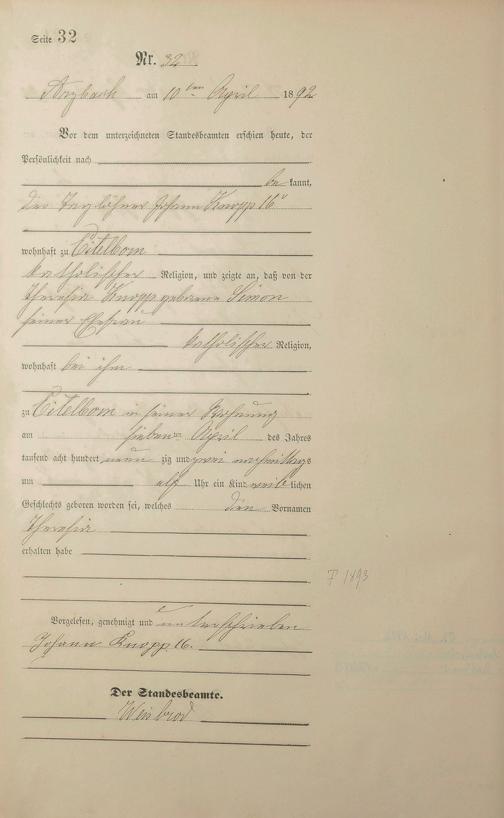 Seite 32
Nr. 32
Arzbach am 10 ten April 1892
Vor dem unterzeichneten Standesbeamten erschien heute, der
Persönlichkeit nach
be kannt,
der Taglöhner Johann Knopp 16r
wohnhaft zu Eitelborn
katholischer Religion, und zeigte an, daß von der
Theresia Knopp geborene Simon
seiner Ehefrau
katholischer Religion,
wohnhaft bei ihm
zu Eitelborn in seiner Wohnung
am sieben ten April des Jahres
tausend acht hundert neun zig und zwei nachmittags
um elf Uhr ein Kind weib lichen
Geschlechts geboren worden sei, welches den Vornamen
Theresia
erhalten habe
Vorgelesen, genehmigt und unterschrieben
Johann Knopp 16.
Der Standesbeamte.
Weisbrod
1893